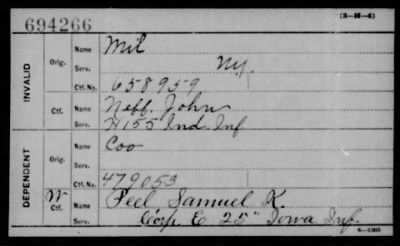 694266
(3-H-4)
INVALID
Orig.
Name Mil
Serv. Ny.
Ctf. No. 658959
Ctf.
Name Neff John
Serv. H 155 Ind. Inf
DEPENDENT
Orig.
Name Coo
Serv.
Ctf. No. 479053
W Ctf.
Name Peel, Samuel K.
Serv. Corp. E 25" Iowa Inf.